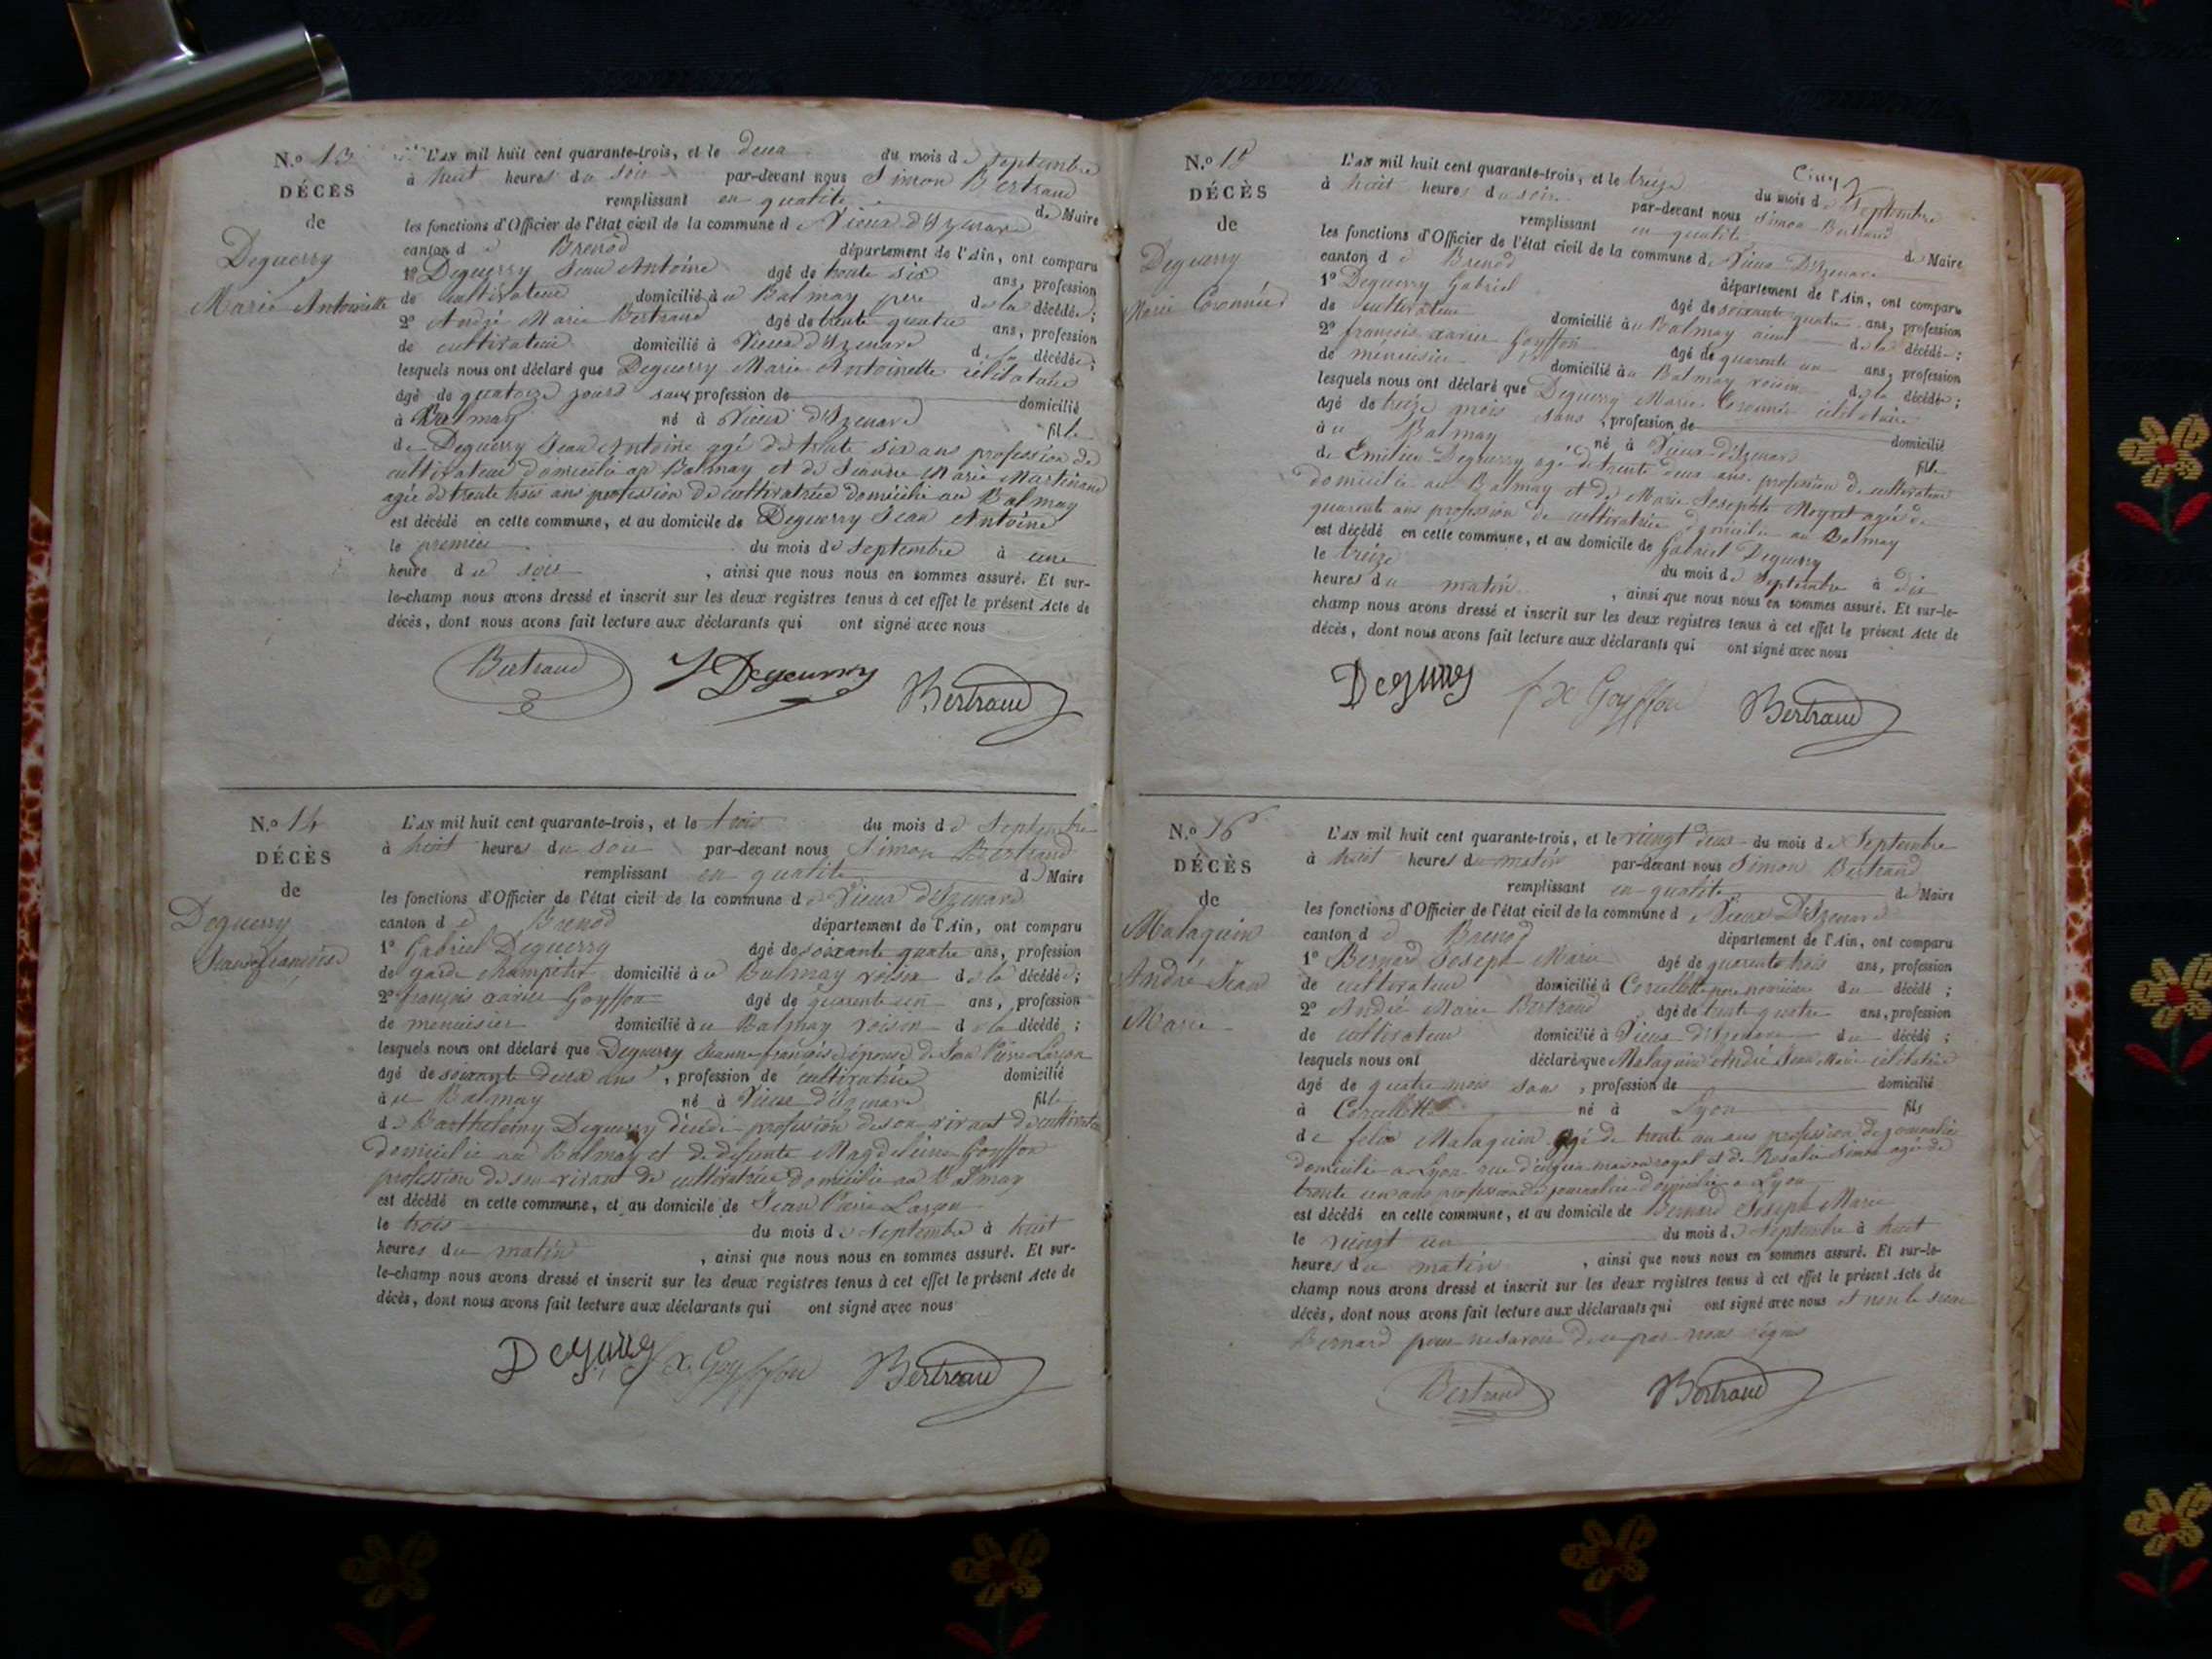 N.o 13
DÉCÈS
de
Deguerry
Marie Antoinette
L'AN mil huit cent quarante-trois, et le deux du mois de Septembre
à huit heures du soir par-devant nous Simon Bertrand
remplissant en qualité de Maire
les fonctions d'Officier de l'état civil de la commune de Vieux d'Izenave
canton de Brenod département de l'Ain, ont comparu
1o Deguerry Jean Antoine âgé de trente six ans, profession
de cultivateur domicilié au Balmay père de la décédée;
2o André Marie Bertrand âgé de trente quatre ans, profession
de cultivateur domicilié à Vieux d'Izenave de la décédée;
lesquels nous ont déclaré que Deguerry Marie Antoinette célibataire
âgé de quatorze jours sans profession de domicilié
à Balmay né à Vieux d'Izenave fille
de Deguerry Jean Antoine agé de trente six ans profession de
cultivateur domicilié au Balmay et de Jeanne Marie Martinand
agée de trente trois ans profession de cultivatrice domicilié au Balmay
est décédé en cette commune, et au domicile de Deguerry Jean Antoine
le premier du mois de Septembre à une
heure du soir, ainsi que nous nous en sommes assuré. Et sur-
le-champ nous avons dressé et inscrit sur les deux registres tenus à cet effet le présent Acte de
décès, dont nous avons fait lecture aux déclarants qui ont signé avec nous
Bertrand J Deguerry Bertrand
N.o 14
DÉCÈS
de
Deguerry
Jeanne françoise
L'AN mil huit cent quarante-trois, et le trois du mois de Septembre
à huit heures du soir par-devant nous Simon Bertrand
remplissant en qualité de Maire
les fonctions d'Officier de l'état civil de la commune de Vieux d'Izenave
canton de Brenod département de l'Ain, ont comparu
1o Gabriel Deguerry âgé de soixante quatre ans, profession
de garde champêtre domicilié au Balmay voisin de la décédée;
2o françois xavier Goyffon âgé de quarente un ans, profession
de menuisier domicilié au Balmay voisin de la décédé;
lesquels nous ont déclaré que Deguerry Jeanne françoise épouse de Jean Pierre Larçon
âgé de soixante deux ans, profession de cultivatrice domicilié
au Balmay né à Vieux d'Izenave fille
de Barthelemy Deguerry décédé profession de son vivant de cultivateur
domicilié au Balmay et de defunte Magdeleine Goyffon
profession de son vivant de cultivatrice domicilié au Balmay
est décédé en cette commune, et au domicile de Jean Pierre Larçon
le trois du mois de Septembre à huit
heures du matin, ainsi que nous nous en sommes assuré. Et sur-
le-champ nous avons dressé et inscrit sur les deux registres tenus à cet effet le présent Acte de
décès, dont nous avons fait lecture aux déclarants qui ont signé avec nous
Deguerry f x Goyffon Bertrand
Cinq
N.o 15
DÉCÈS
de
Deguerry
Marie
L'AN mil huit cent quarante-trois, et le treize du mois de Septembre
à huit heures du soir par-devant nous Simon Bertrand
remplissant en qualité de Maire
les fonctions d'Officier de l'état civil de la commune de Vieux D'Izenave
canton de Brenod département de l'Ain, ont comparu
1o Deguerry Gabriel âgé de soixante quatre ans, profession
de cultivateur domicilié au Balmay de la décédé;
2o françois xavier Goyffon âgé de quarente un ans, profession
de menuisier domicilié au Balmay voisin de la décédée;
lesquels nous ont déclaré que Deguerry Marie célibataire
âgé de treize mois sans, profession de domicilié
au Balmay né à Vieux-d'Izenave fille
de Emilien Deguerry agé de trente deux ans profession de cultivateur
domicilié au Balmay et de Marie Josephte Moyret agée de
quarente ans profession de cultivatrice domicilié au Balmay
est décédé en cette commune, et au domicile de Gabriel Deguerry
le treize du mois de Septembre à dix
heures du matin, ainsi que nous nous en sommes assuré. Et sur-le-
champ nous avons dressé et inscrit sur les deux registres tenus à cet effet le présent Acte de
décès, dont nous avons fait lecture aux déclarants qui ont signé avec nous
Deguerry f x Goyffon Bertrand
N.o 16
DÉCÈS
de
Malaquin
André Jean
Marie
L'AN mil huit cent quarante-trois, et le vingt deux du mois de Septembre
à huit heures du matin par-devant nous Simon Bertrand
remplissant en qualité de Maire
les fonctions d'Officier de l'état civil de la commune de Vieux D'Izenave
canton de Brenod département de l'Ain, ont comparu
1o Bernard Joseph Marie âgé de quarente trois ans, profession
de cultivateur domicilié à Corcelette père nourricier du décédé;
2o André Marie Bertrand âgé de trente quatre ans, profession
de cultivateur domicilié à Vieux d'Izenave du décédé;
lesquels nous ont déclaré que Malaquin André Jean Marie célibataire
âgé de quatre mois sans, profession de domicilié
à Corcelette né à Lyon fils
de felix Malaquin agé de trente un ans profession de journalier
domicilié a Lyon rue maison royal et de Rosalie Simon agée de
trente un ans profession de journalière domicilié a Lyon
est décédé en cette commune, et au domicile de Bernard Joseph Marie
le vingt un du mois de Septembre à huit
heures du matin, ainsi que nous nous en sommes assuré. Et sur-le-
champ nous avons dressé et inscrit sur les deux registres tenus à cet effet le présent Acte de
décès, dont nous avons fait lecture aux déclarants qui ont signé avec nous et non le sieur
Bernard pour ne savoir de ce par nous
Bertrand Bertrand